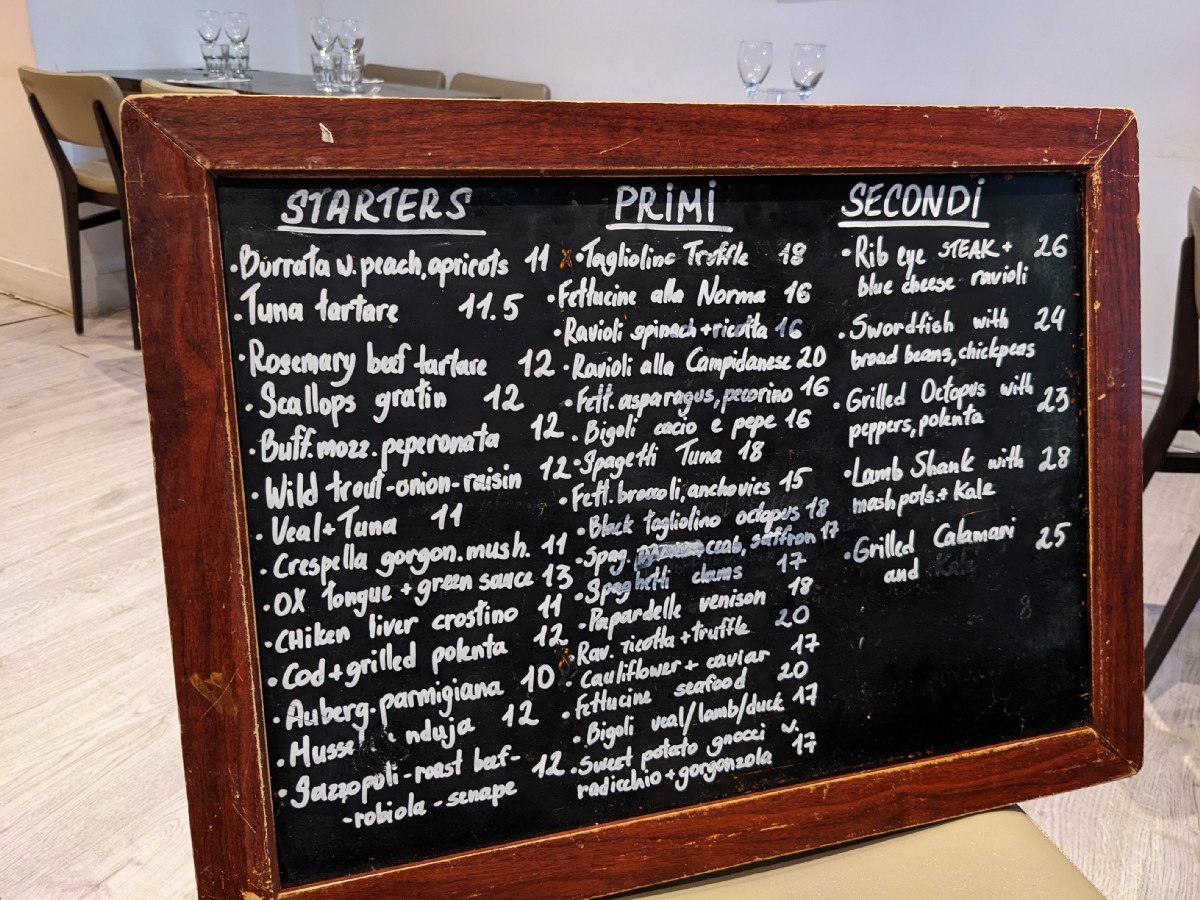 STARTERS
·Burrata w. peach, apricots 11
·Tuna tartare 11.5
·Rosemary beef tartare 12
·Scallops gratin 12
·Buff. mozz. peperonata 12
·Wild trout-onion-raisin 12
·Veal+Tuna 11
·Crespella gorgon. mush. 11
·OX Tongue + green sauce 13
·CHiken liver crostino 11
·Cod + grilled polenta 12
·Auberg. parmigiana 10
·Musse nduja 12
·Gazzopoli-roast beef- 12
-robiola-senape
PRiMi
·Tagliolino Truffle 18
·Fettucine alla Norma 16
·Ravioli spinach + ricotta 16
·Ravioli alla Campidanese 20
·Fett. asparagus, pecorino 16
·Bigoli cacio e pepe 16
·Spagetti Tuna 18
·Fett. broccoli, anchovies 15
·Black tagliolino octopus 18
·Spag. crab, saffron 17
·Spaghetti clams 17
·Papardelle venison 18
·Rav. ricotta + truffle 20
·Cauliflower + caviar 17
·Fettucine seafood 20
·Bigoli veal/lamb/duck 17
·Sweet potato gnocci w. 17
radicchio + gorgonzola
SECONDi
·Rib eye STEAK + 26
blue cheese ravioli
·Swordfish with 24
broad beans, chickpeas
·Grilled Octopus with 23
peppers, polenta
·Lamb Shank with 28
mash pots. + Kale
·Grilled Calamari 25
and Kale